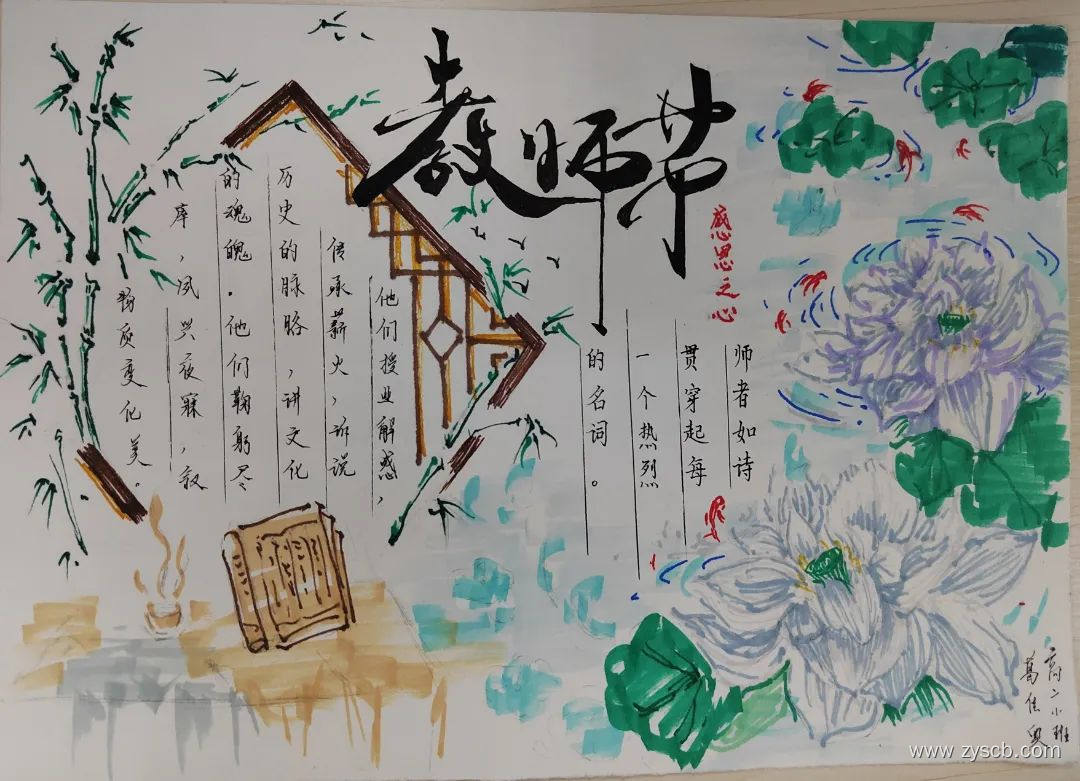 教师节
感恩之心
师者如诗
贯穿起每
一个热烈
的名词。
他们授业解惑，
传承薪火，诉说
历史的脉络，讲文化
的魂魄。他们鞠躬尽
瘁，夙兴夜寐，叙
质变化美。
高二小班
葛佳
www.zyscb.com